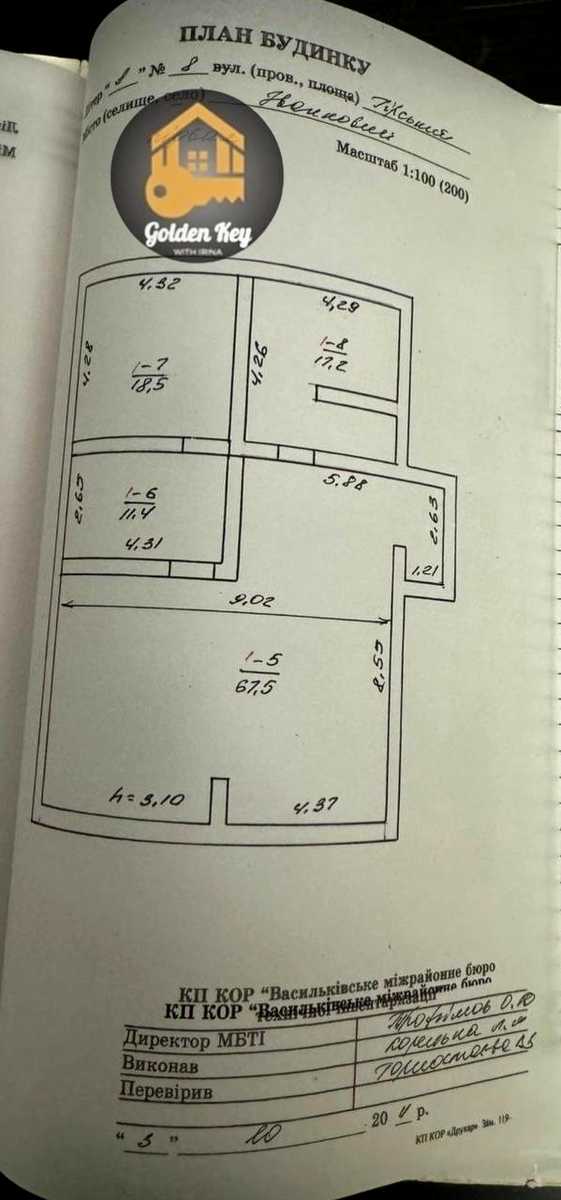 ПЛАН БУДИНКУ
№ 8 вул. (пров., площа)
(селище, село) Іванковичі
Масштаб 1:100 (200)
Golden Key
WITH IRINA
4.32
4,29
4.28
1-7
18,5
4.26
1-8
17.2
5.88
2.65
1-6
11.4
4.31
2.63
1.21
9.02
1-5
67,5
8.55
h=3,10
4.37
КП КОР “Васильківське міжрайонне бюро
КП КОР “Васильківське міжрайонне бюро
технічної інвентаризації
Директор МБТІ
Виконав
Перевірив
“ 3 ” 10 20 р.
КП КОР «Друкар» Зам. 119-